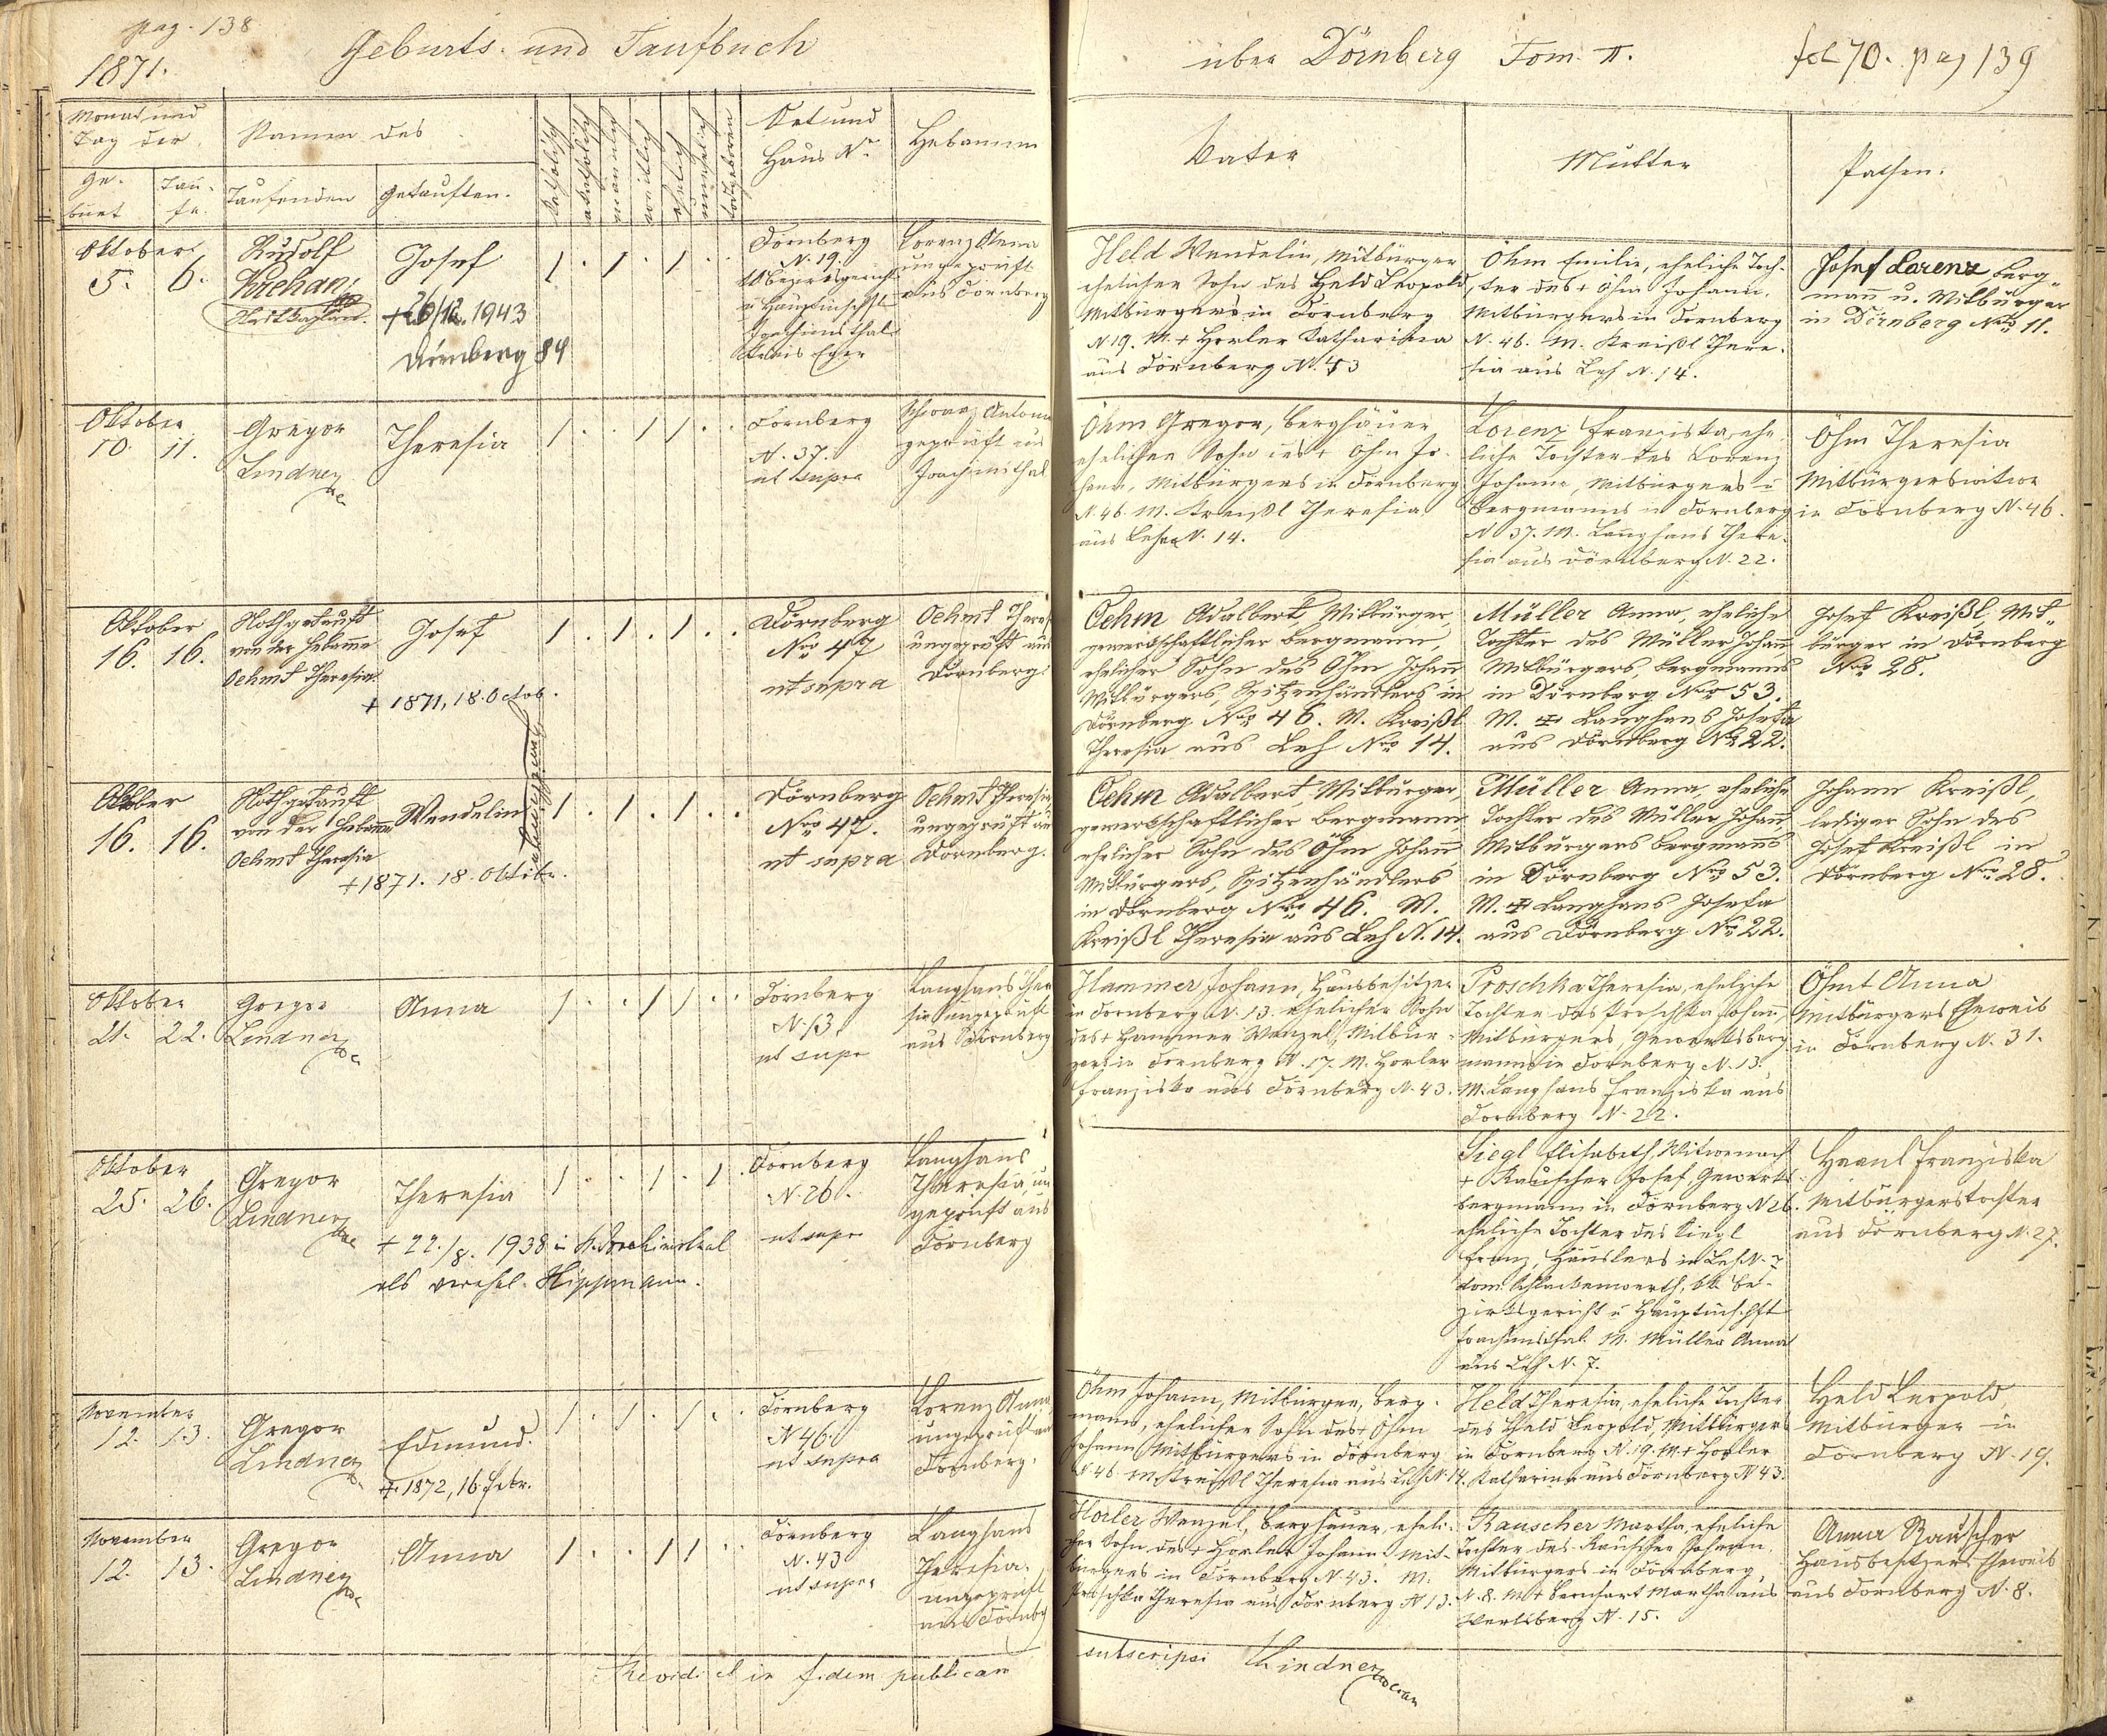 pag. 138
1871.
Geburts- und Taufbuch
über Dörnberg Tom. II.
fol 70. pag 139
Monat und
Tag der
Namen des
Ge-
burt
Tau-
fe.
Taufenden
Getauften.
katholisch
akatholisch
männlich
weiblich
ehelich
unehelich
todtgeboren
Ort und
Haus Nr.
Hebamme
Vater
Mutter
Pathen.
Oktober
5. 6.
Rudolf
Josef
+26/12. 1943
Dörnberg 84
1 . 1 . 1 . .
Dörnberg
N. 19.
k k Bezirksgericht
u Hauptmschft
Joachimsthal
Kreis Eger
Lorenz Anna
ungeprüft
aus Dörnberg
Held Wendelin, Mitbürger
ehelicher Sohn des Held Leopold,
Mitbürgers in Dörnberg
N 19. M. + Horler Katharina
aus Dörnberg N. 43
Öhm Emilie, eheliche Toch-
ter des + Öhm Johann,
Mitbürgers in Dörnberg
N. 46. M. Kreißl There-
sia aus Leh N. 14.
Josef Lorenz Berg-
mann u. Mitbürger
in Dörnberg Nro 11.
Oktober
10. 11.
Gregor
Lindner
Theresia
1 . . 1 1 . .
Dörnberg
N. 37.
ut supra
geprüft aus
Joachimsthal
Öhm Gregor, Berghäuer
ehelicher Sohn des + Öhm Jo-
hann, Mitbürgers in Dörnberg
N 46 M. Kreißl Theresia
aus Leh N. 14.
Lorenz Franziska, ehe-
liche Tochter des Lorenz
Johann, Mitbürgers u
Bergmanns in Dörnberg
N 37. M. Langhans There-
sia aus Dörnberg N. 22.
Öhm Theresia
Mitbürgerswitwe
in Dörnberg N. 46.
Oktober
16. 16.
Nothgetauft
von der Hebamme
Oehmt Theresia
Josef
+ 1871, 18. Octob.
1 . 1 . 1 . .
Dörnberg
Nro 47
ut supra
Oehmt Theres
ungeprüft aus
Dörnberg.
Oehm Adalbert, Mitbürger,
gewerkschaftlicher Bergmann,
ehelicher Sohn des Öhm Johann
Mitbürgers, Spitzenhändlers in
Dörnberg Nro 46. M. Kreißl
Theresia aus Leh Nro 14.
Müller Anna, eheliche
Tochter des Müller Johann
Mitbürgers, Bergmanns
in Dörnberg Nro 53.
M. + Langhans Josefa
aus Dörnberg No 22.
Josef Kreißl, Mit-
bürger in Dörnberg
Nro 28.
Zwillinge
Oktober
16. 16.
Nothgetauft
von der Hebamme
Oehmt Theresia
Wendelin
+1871. 18. Oktob.
1 . 1 . 1 . .
Dörnberg
Nro 47.
ut supra
Oehmt Theresia,
ungeprüft aus
Dörnberg.
Oehm Adalbert, Mitbürger,
gewerkschaftlicher Bergmann,
ehelicher Sohn des Öhm Johann
Mitbürgers, Spitzenhändlers
in Dörnberg Nro 46. M.
Kreißl Theresia aus Leh N. 14.
Müller Anna, eheliche
Tochter des Müller Johann
Mitbürgers Bergmanns
in Dörnberg Nro 53.
M. + Langhans Josefa
aus Dörnberg No 22.
Johann Kreißl,
lediger Sohn des
Josef Kreißl in
Dörnberg Nro 28.
Oktober
21. 22.
Gregor
Lindner
Anna
1 . . 1 1 . .
Dörnberg
N. 13
ut supr
Langhans There
sia ungeprüft
aus Dörnberg
Hammer Johann, Hausbesitzer
in Dörnberg N. 13 ehelicher Sohn
des + Hammer Wenzel, Mitbür-
gers in Dörnberg N. 17. M. Horler
Franziska aus Dörnberg N. 43.
Proschka Theresia, eheliche
Tochter des Proschka Johann,
Mitbürgers, Gewerksberg-
manns in Dörnberg N. 13.
M. Langhans Franziska aus
Dörnberg N. 22.
Öhmt Anna
Mitbürgers Eheweib
in Dörnberg N. 31.
Oktober
25. 26.
Gregor
Lindner
Theresia
+ 22./8. 1938 in St. Joachimstal
als verehel. Hippmann.
1 . . 1 . 1 .
Dörnberg
N. 26.
ut supr
Langhans
Theresia, un
geprüft aus
Dörnberg
Siegl Elisabeth, Witwe nach
+ Rauscher Josef, Gewerks-
bergmann in Dörnberg N 26.
eheliche Tochter des Siegl
Franz, Häuslers in Leh N. 7
dom. Schlackenwerth, kk Be-
zirksgericht u Hauptmschft
Joachimsthal. M. Müller Anna
aus Leh N. 7.
Franziska
Mitbürgerstochter
aus Dörnberg N. 27.
November
12. 13.
Gregor
Lindner
Edmund.
+ 1872, 16. Febr.
1 . 1 . 1 . .
Dörnberg
N 46.
ut supra
Lorenz Anna,
ungeprüft aus
Dörnberg.
Öhm Johann, Mitbürger, Berg-
mann, ehelicher Sohn des + Öhm
Johann Mitbürgers in Dörnberg
N 46 M. Kreißl Theresia aus Leh N. 14.
Held Theresia, eheliche Tochter
des Held Leopold, Mitbürgers
in Dörnberg N. 19. M. + Horler
Katharina aus Dörnberg N 43.
Held Leopold,
Mitbürger in
Dörnberg N. 19.
November
12. 13.
Gregor
Lindner
Anna
1 . . 1 1 . .
Dörnberg
N. 43
ut supra
Langhans
Theresia,
ungeprüft
aus Dörnbg
Horler Wenzel, Berghäuer, eheli-
cher Sohn des + Horler Johann Mit-
bürgers in Dörnberg N. 43. M.
Proschka Theresia aus Dörnberg N 13.
Rauscher Martha, eheliche
Tochter des Rauscher Johann,
Mitbürgers in Dörnberg,
N. 8. M + Bernhart Martha aus
N. 15.
Anna Rauscher
Hausbesitzers Eheweib
aus Dörnberg N. 8.
Revidi et in fidem publicam
subscripsi Lindner